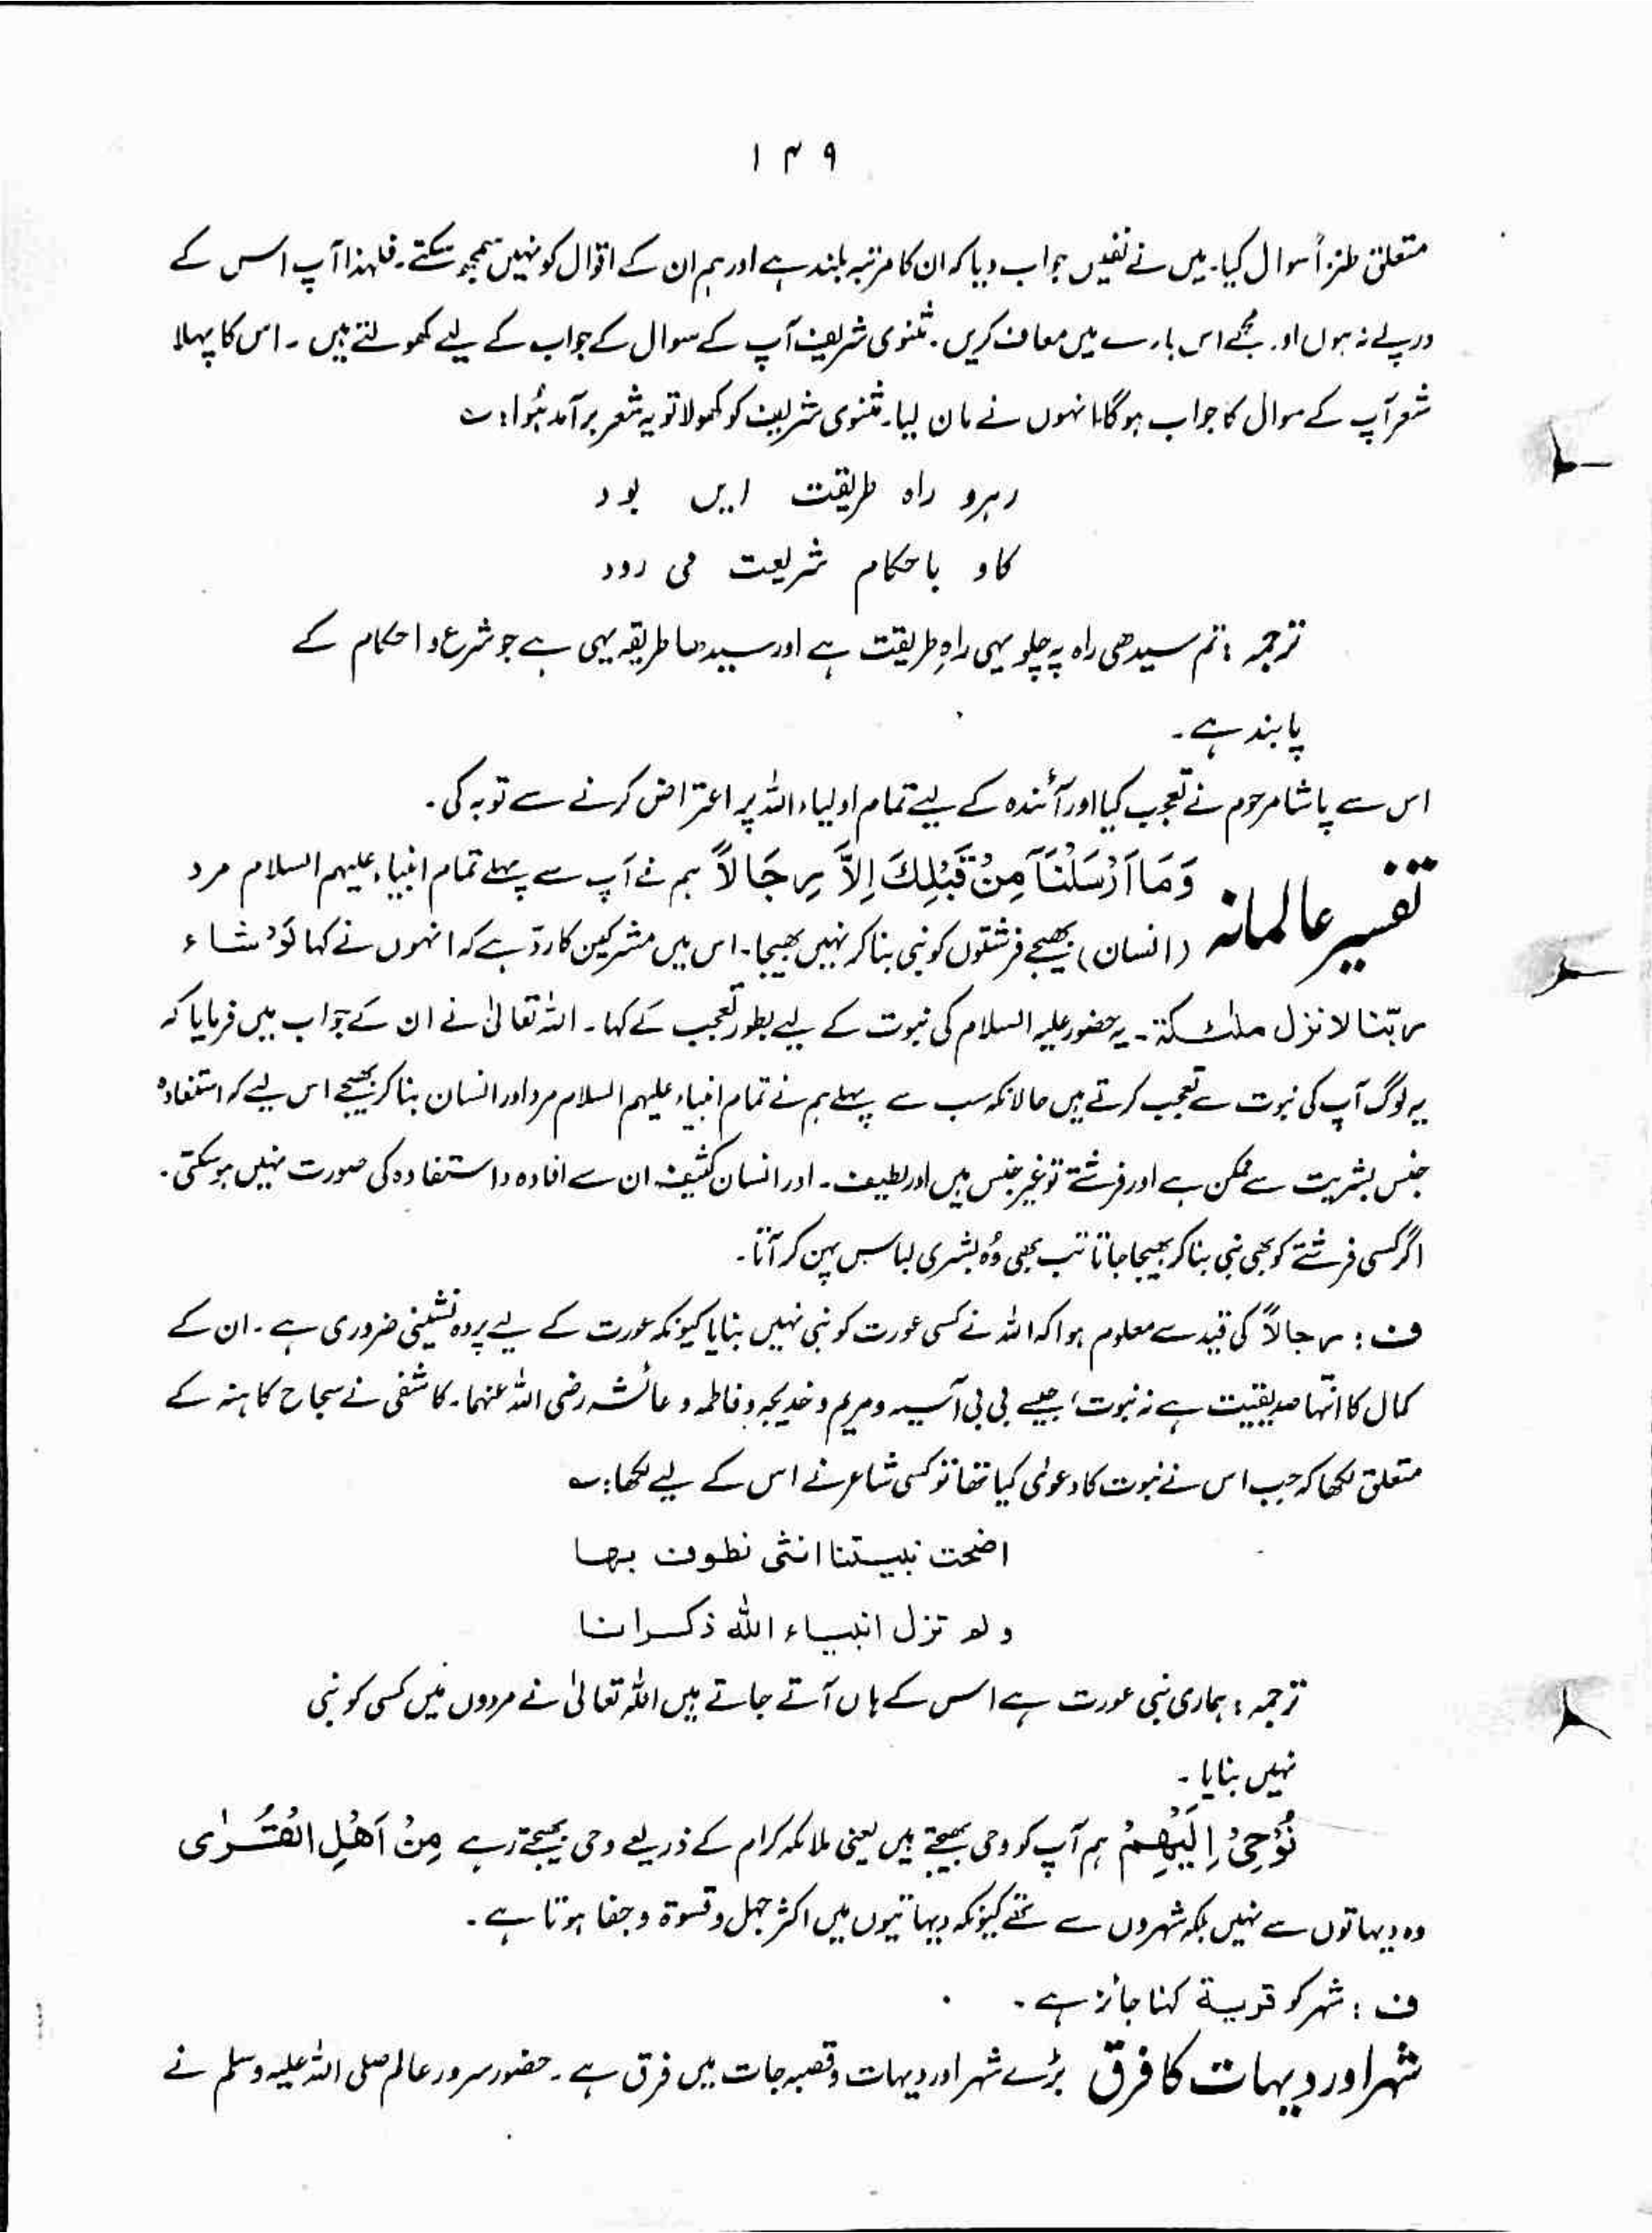 ۱۴۹
متعلق طنزاً سوال کیا۔ میں نے نفیس جواب دیا کہ ان کا مرتبہ بلند ہے اور ہم ان کے اقوال کو نہیں سمجھ سکتے۔ فلہٰذا آپ اس کے
درپے نہ ہوں اور مجھے اس بارے میں معاف کریں۔ مثنوی شریف آپ کے سوال کے جواب کے لیے کھولتے ہیں۔ اس کا پہلا
شعر آپ کے سوال کا جواب ہوگا۔ انہوں نے مان لیا۔ مثنوی شریف کو کھولا تو یہ شعر برآمد ہُوا : ؎
رہرو راہ طریقت ایں بود
کاو باحکام شریعت می رود
ترجمہ : تم سیدھی راہ پہ چلو یہی راہِ طریقت ہے اور سیدھا طریقہ یہی ہے جو شرع و احکام کے
پابند ہے۔
اس سے پاشا مرحوم نے تعجب کیا اور آئندہ کے لیے تمام اولیاء اللہ پر اعتراض کرنے سے توبہ کی۔
تفسیر عالمانہ وَمَآ اَرْسَلْنَا مِنْ قَبْلِكَ اِلَّا رِجَالًا ہم نے آپ سے پہلے تمام انبیاء علیہم السلام مرد
(انسان) بھیجے فرشتوں کو نبی بنا کر نہیں بھیجا۔ اس میں مشرکین کا ردّ ہے کہ انہوں نے کہا لَوْ شاء
ربّنا لانزل ملٰئكة۔ یہ حضور علیہ السلام کی نبوت کے لیے بطور تعجب کے کہا۔ اللہ تعالیٰ نے ان کے جواب میں فرمایا کہ
یہ لوگ آپ کی نبوت سے تعجب کرتے ہیں حالانکہ سب سے پہلے ہم نے تمام انبیاء علیہم السلام مرد اور انسان بنا کر بھیجے اس لیے کہ استفادہ
جنس بشریت سے ممکن ہے اور فرشتے تو غیر جنس ہیں اور لطیف۔ اور انسان کثیف۔ ان سے افادہ و استفادہ کی صورت نہیں ہوسکتی۔
اگر کسی فرشتے کو بھی نبی بنا کر بھیجا جاتا تب بھی وُہ بشری لباس پہن کر آتا۔
ف : رجالاً کی قید سے معلوم ہوا کہ اللہ نے کسی عورت کو نبی نہیں بنایا کیونکہ عورت کے لیے پردہ نشینی ضروری ہے۔ ان کے
کمال کا انتہا صدیقیت ہے نہ نبوت، جیسے بی بی آسیہ و مریم و خدیجہ و فاطمہ و عائشہ رضی اللہ عنہما۔ کاشفی نے سجاح کاہنہ کے
متعلق لکھا کہ جب اس نے نبوت کا دعوٰی کیا تھا تو کسی شاعر نے اس کے لیے لکھا : ؎
اضحت نبيتنا انثى نطوف بها
ولم تزل انبياء الله ذكرانا
ترجمہ : ہماری نبی عورت ہے اس کے ہاں آتے جاتے ہیں اللہ تعالیٰ نے مردوں میں کسی کو نبی
نہیں بنایا۔
نُوْحِيْ اِلَيْهِمْ ہم آپ کو وحی بھیجتے ہیں یعنی ملائکہ کرام کے ذریعے وحی بھیجتے رہے مِنْ اَهْلِ الْقُرٰى
وہ دیہاتوں سے نہیں بلکہ شہروں سے تھے کیونکہ دیہاتیوں میں اکثر جہل و قسوۃ و جفا ہوتا ہے۔
ف : شہر کو قریۃ کہنا جائز ہے۔
شہر اور دیہات کا فرق بڑے شہر اور دیہات و قصبہ جات میں فرق ہے۔ حضور سرور عالم صلی اللہ علیہ وسلم نے